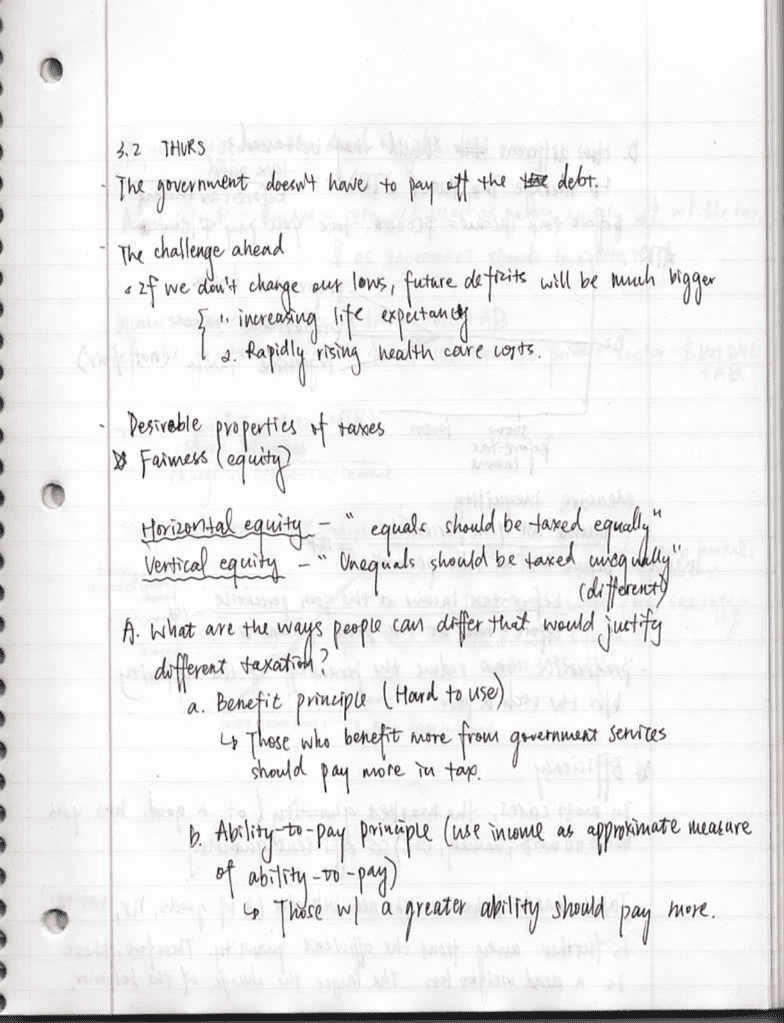 3.2 THURS
- The government doesn't have to pay off the debt.
- The challenge ahead
• If we don't change our laws, future deficits will be much bigger
1. increasing life expectancy
2. Rapidly rising health care costs.
- Desirable properties of taxes
Fairness (equity)
Horizontal equity - "equals should be taxed equally"
Vertical equity - "Unequals should be taxed unequally"
(different)
A. What are the ways people can differ that would justify
different taxation?
a. Benefit principle (Hard to use)
↳ Those who benefit more from government services
should pay more in tax.
b. Ability-to-pay principle (use income as approximate measure
of ability-to-pay)
↳ Those w/ a greater ability should pay more.